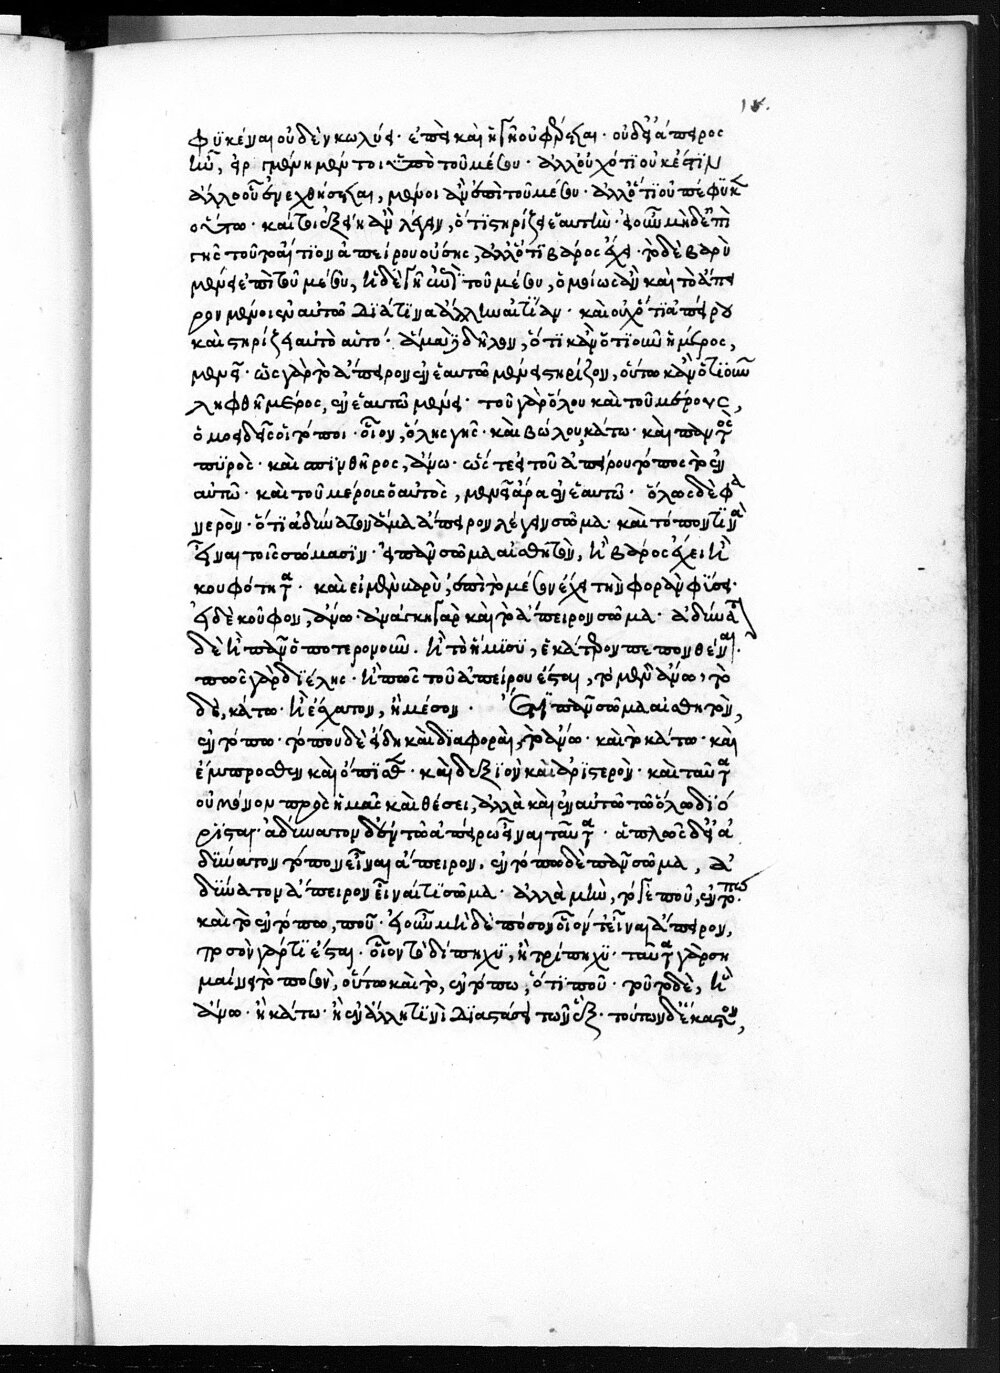 φϋκέναι οὐδὲν κωλύει· ἐπεὶ καὶ ἡ γῆ οὐ φέρεται· οὐδ' εἰ ἄπειρος
ἦν, εἰργμένη μέντοι ὑπὸ τοῦ μέσου· ἀλλ' οὐχ ὅτι οὐκ ἔστιν
ἄλλο οὗ ἐνεχθήσεται, μένοι ἂν ἐπὶ τοῦ μέσου· ἀλλ' ὅτι οὐ πέφυκ
οὕτω· καίτοι ἐξείη ἂν λέγειν, ὅτι στηρίζει ἑαυτήν· εἰ οὖν μηδ' ἐπὶ
γῆς τοῦτο αἴτιον ἀπείρου οὔσης, ἀλλ' ὅτι βάρος ἔχει· τὸ δὲ βαρὺ
μένει ἐπὶ τοῦ μέσου, ἡ δὲ γῆ ἐπὶ τοῦ μέσου, ὁμοίως ἂν καὶ τὸ ἄπει
ρον μένοι ἐν αὑτῶ διά τινα ἄλλην αἰτίαν· καὶ οὐχ' ὅτι ἄπειρον
καὶ στηρίζει αὐτὸ αὑτό· ἅμα δὲ δῆλον, ὅτι κἂν ὁτιοῦν ἡ μέρος,
μένειν· ὡς γὰρ τὸ ἄπειρον ἐν ἑαυτῶ μένει στηρίζον, οὕτω κἂν ὁτιοῦν
ληφθῆ μέρος, ἐν ἑαυτῶ μένει· τοῦ γὰρ ὅλου καὶ τοῦ μέρους,
ὁμοειδεῖς οἱ τόποι· οἷον, ὅλης γῆς· καὶ βώλου, κάτω· καὶ παντὸς
πυρὸς· καὶ σπινθῆρος, ἄνω· ὥστε εἰ τοῦ ἀπείρου τόπος τὸ ἐν
αὑτῶ· καὶ τοῦ μέρους ὁ αὐτὸς, μενεῖ ἄρα ἐν ἑαυτῶ· ὅλως δὲ φα
νερὸν· ὅτι ἀδύνατον ἅμα ἄπειρον λέγειν σῶμα· καὶ τόπον τινὰ
εἶναι τοῖς σώμασιν· εἰ πᾶν σῶμα αἰσθητὸν, ἢ βάρος ἔχει ἢ
κουφότητα· καὶ εἰ μὲν βαρὺ, ἐπὶ τὸ μέσον ἔχει τὴν φορὰν φύσει·
εἰ δὲ κοῦφον, ἄνω· ἀνάγκη γὰρ καὶ τὸ ἄπειρον σῶμα· ἀδύνατον
δὲ ἢ πᾶν ὁποτερονοῦν· ἢ τὸ ἥμισυ, ἑκάτερον πεπονθέναι·
πῶς γὰρ διέλης· ἢ πῶς τοῦ ἀπείρου ἔσται, τὸ μὲν ἄνω, τὸ
δὲ, κάτω· ἢ ἔσχατον, ἢ μέσον· ἔτι πᾶν σῶμα αἰσθητὸν,
ἐν τόπω· τόπου δὲ εἴδη καὶ διαφοραὶ, τὸ ἄνω· καὶ τὸ κάτω· καὶ
ἔμπροσθεν καὶ ὄπισθεν· καὶ δεξιὸν καὶ ἀριστερὸν· καὶ ταῦτα
οὐ μόνον πρὸς ἡμᾶς καὶ θέσει, ἀλλὰ καὶ ἐν αὐτῶ τῶ ὅλω διό
ρισται· ἀδύνατον δὲ ἐν τῶ ἀπείρω εἶναι ταῦτα· ἁπλῶς δ' εἰ ἀ
δύνατον τόπον εἶναι ἄπειρον, ἐν τόπω δὲ πᾶν σῶμα, ἀ
δύνατον ἄπειρον εἶναί τι σῶμα· ἀλλὰ μὴν, τό γε ποῦ, ἐν τόπω·
καὶ τὸ ἐν τόπω, ποῦ· εἰ οὖν μηδὲ ποσὸν οἷόν τε εἶναι ἄπειρον,
ποσὸν γάρ τι ἔσται· οἷον τὸ δίπηχυ, ἢ τρίπηχυ· ταῦτα γὰρ ση
μαίνει τὸ ποσὸν, οὕτω καὶ τὸ, ἐν τόπω, ὅτι ποῦ· τοῦτο δὲ, ἢ
ἄνω· ἢ κάτω· ἢ ἐν ἄλλη τινὶ διαστάσει τῶν ἕξ· τούτων δ' ἕκαστον,